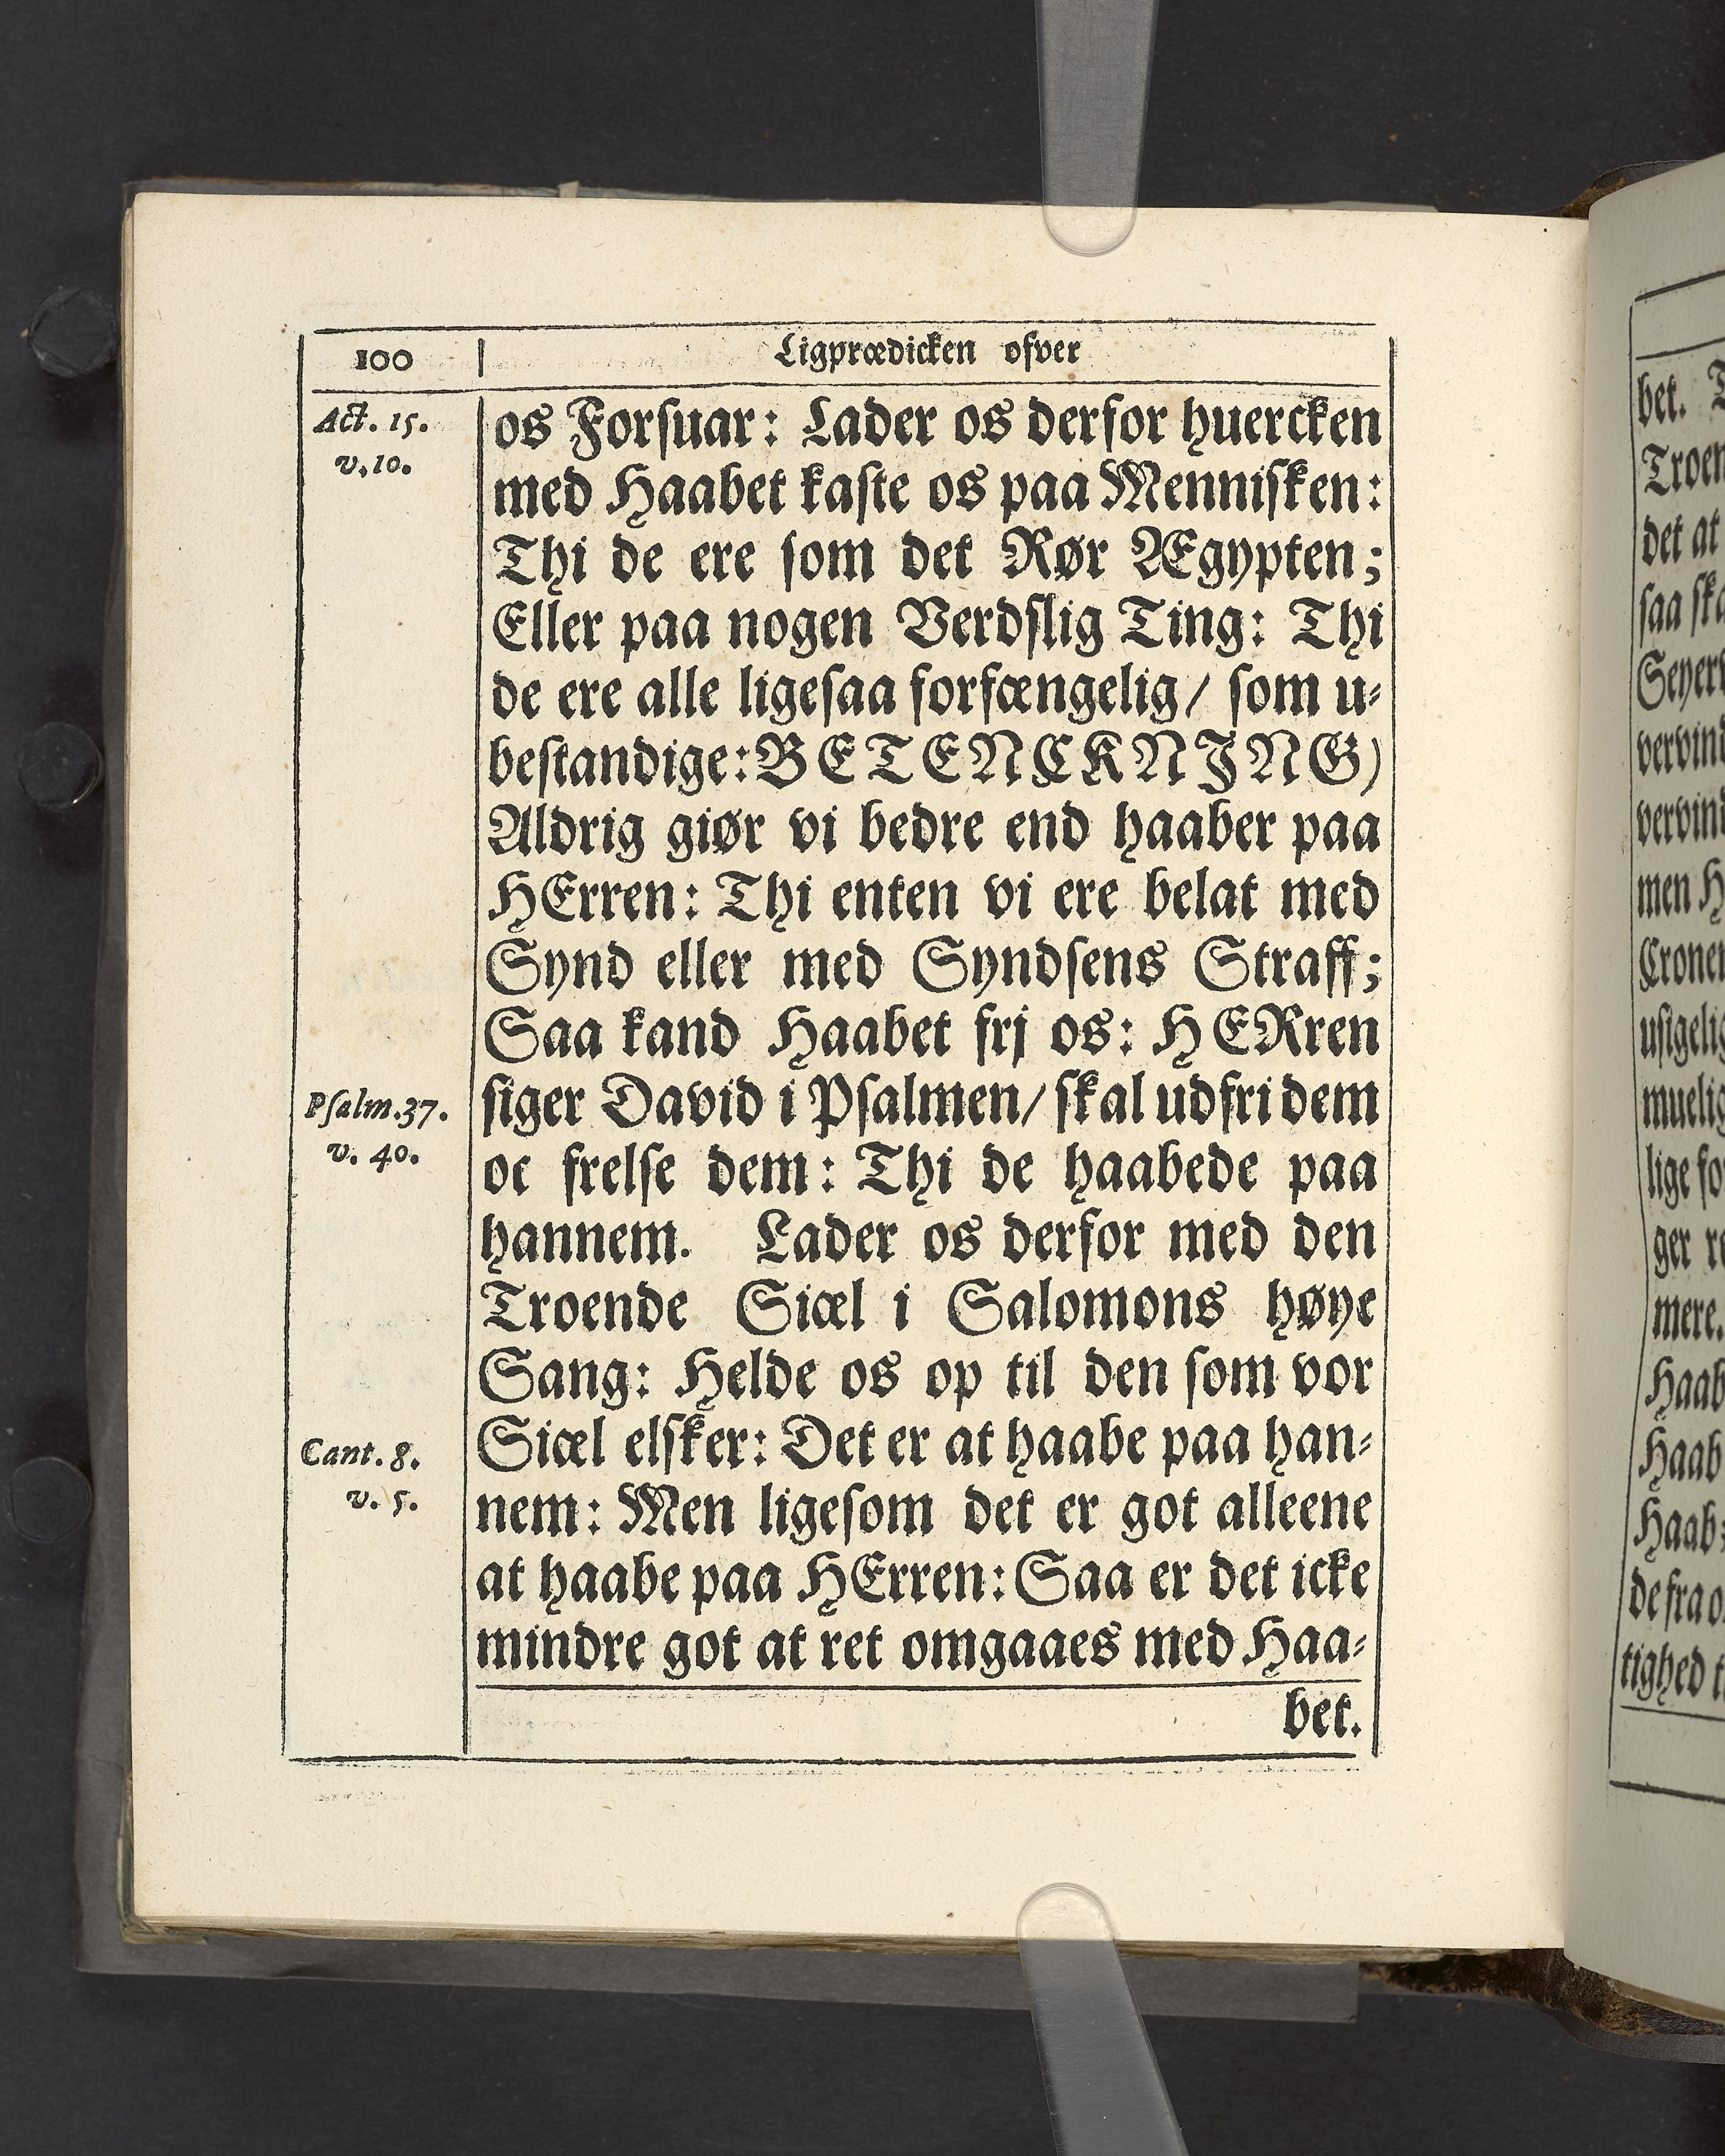 100
Ligprædicken ofver
Act. 15.
v. 10.
os Forsuar: Lader os derfor huercken
med Haabet kaste os paa Mennisken:
Thi de ere som det Rør Ægypten;
Eller paa nogen Verdslig Ting: Thi
de ere alle ligesaa forfængelig/ som u-
bestandige: BETENCKNING)
Aldrig giør vi bedre end haaber paa
HErren: Thi enten vi ere belat med
Synd eller med Syndsens Straff;
Saa kand Haabet frj os: HERren
Psalm. 37.
v. 40.
siger David i Psalmen/ skal udfri dem
oc frelse dem: Thi de haabede paa
hannem. Lader os derfor med den
Troende Siæl i Salomons høye
Sang: Helde os op til den som vor
Cant. 8.
v. 5.
Siæl elsker: Det er at haabe paa han-
nem: Men ligesom det er got alleene
at haabe paa HErren: Saa er det icke
mindre got at ret omgaaes med Haa-
bet.
bet.
Troen
det at
saa ska
Seyer
vervind
vervind
men H
Cronen
usigelig
muelig
lige fo
ger re
mere.
Haab
Haab
Haab:
de fra o
tighed t